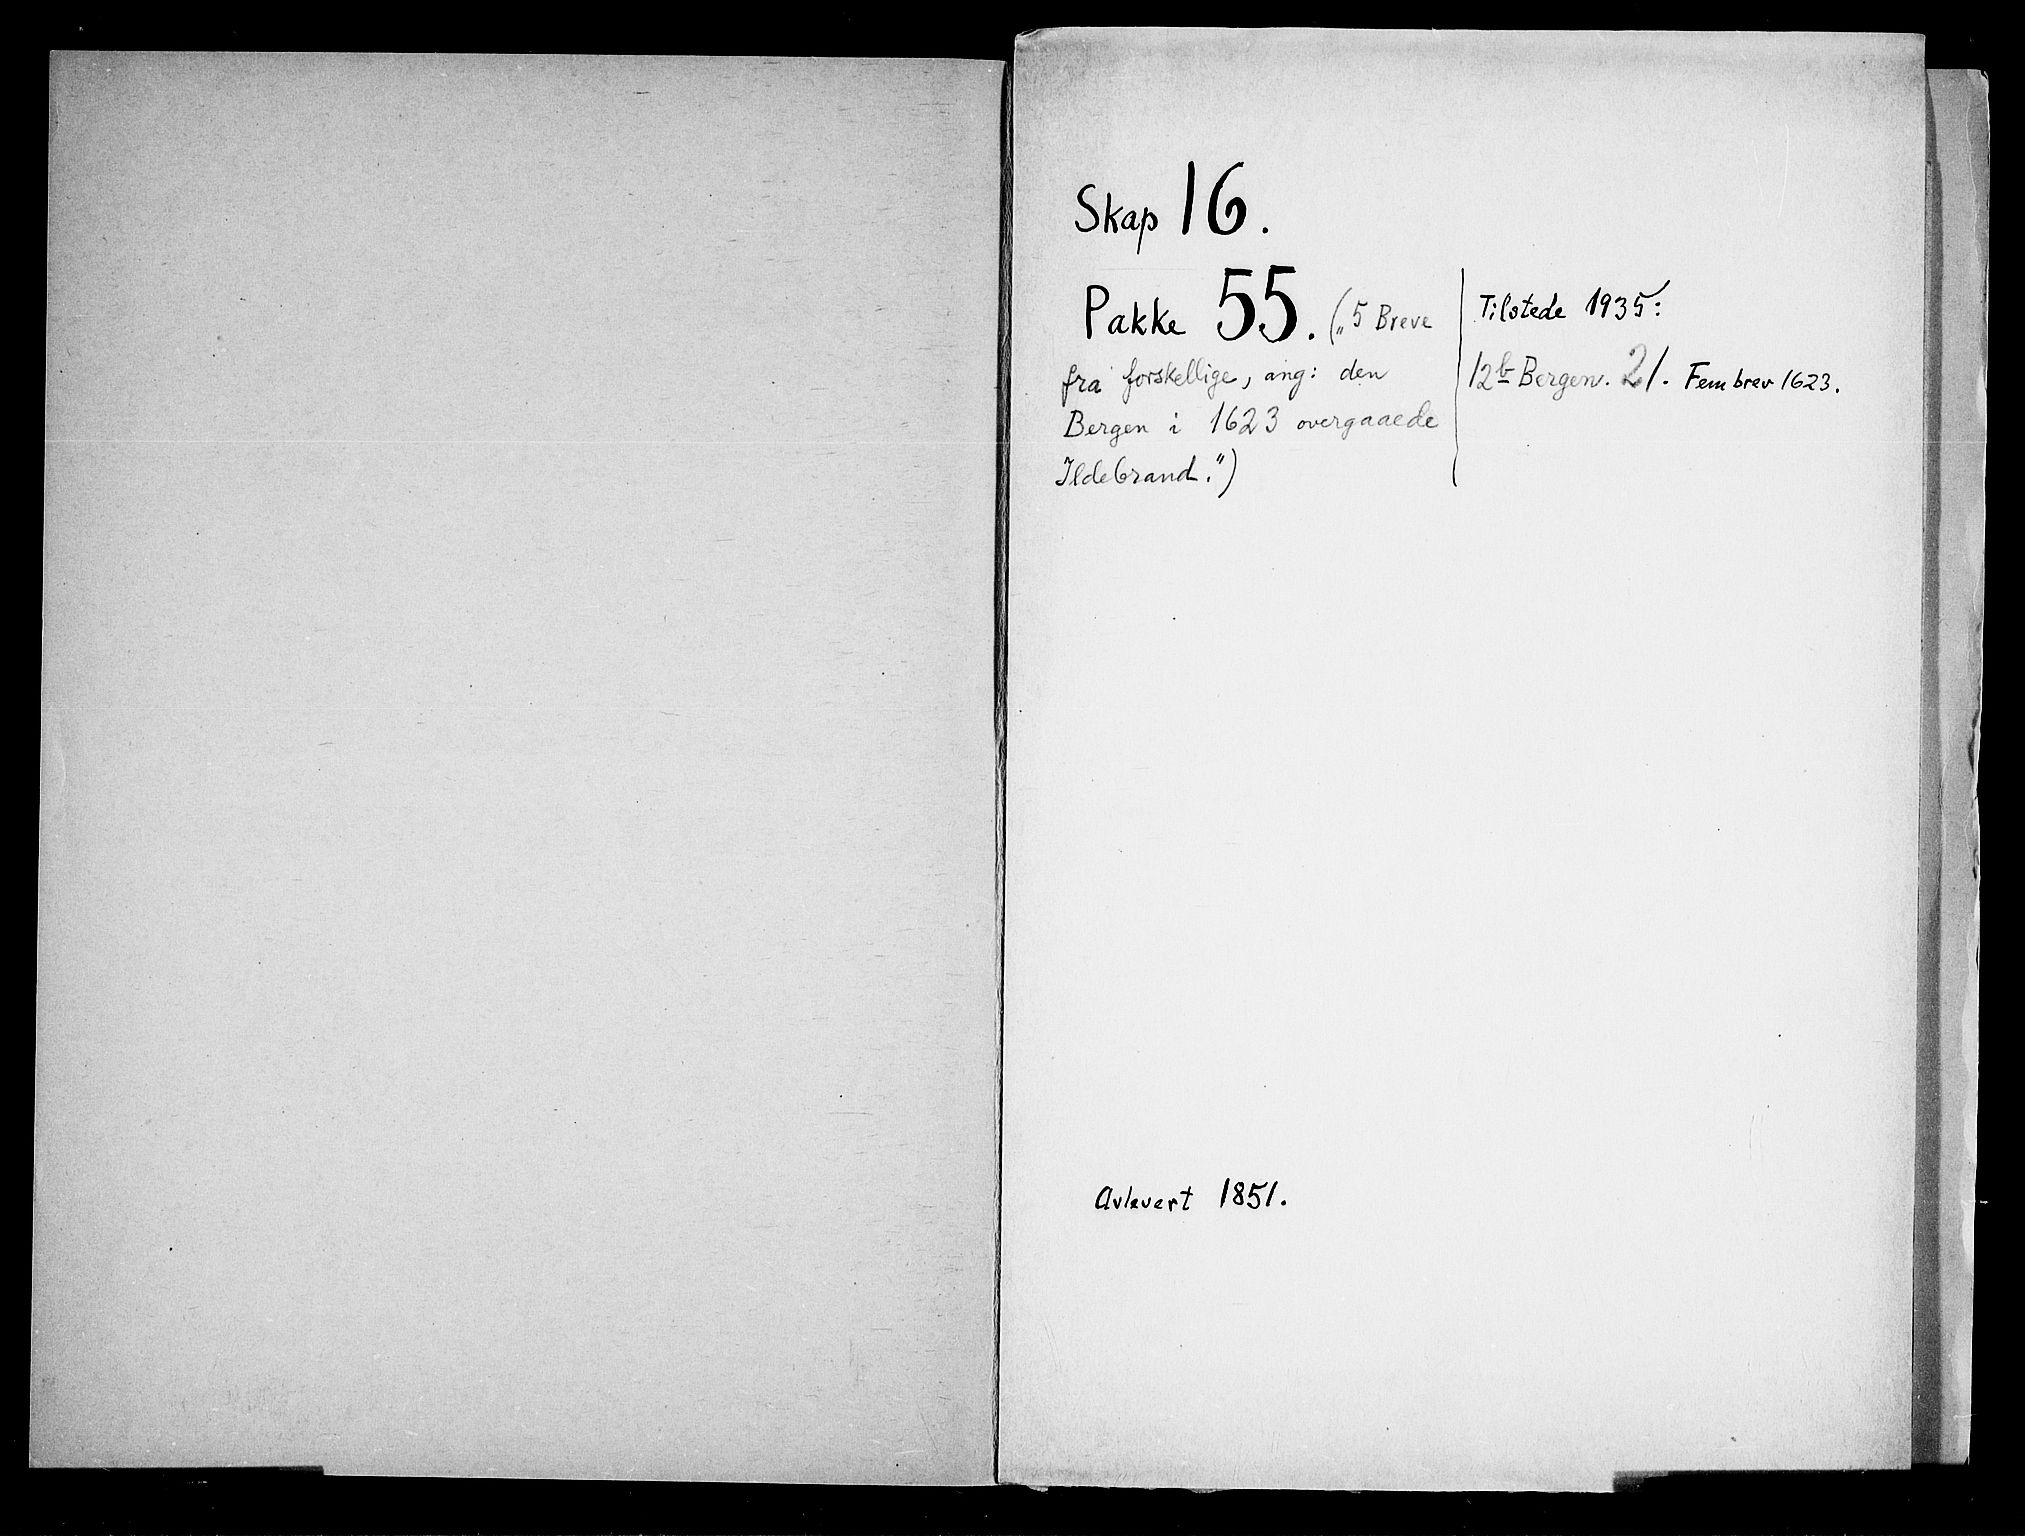 Skap 16.
Pakke 55. („5 Breve
fra forskellige, ang: den
Bergen i 1623 overgaaede
Ildebrand.")
Tilstede 1935:
12b Bergen. 21. Fem brev 1623.
Avlevert 1851.